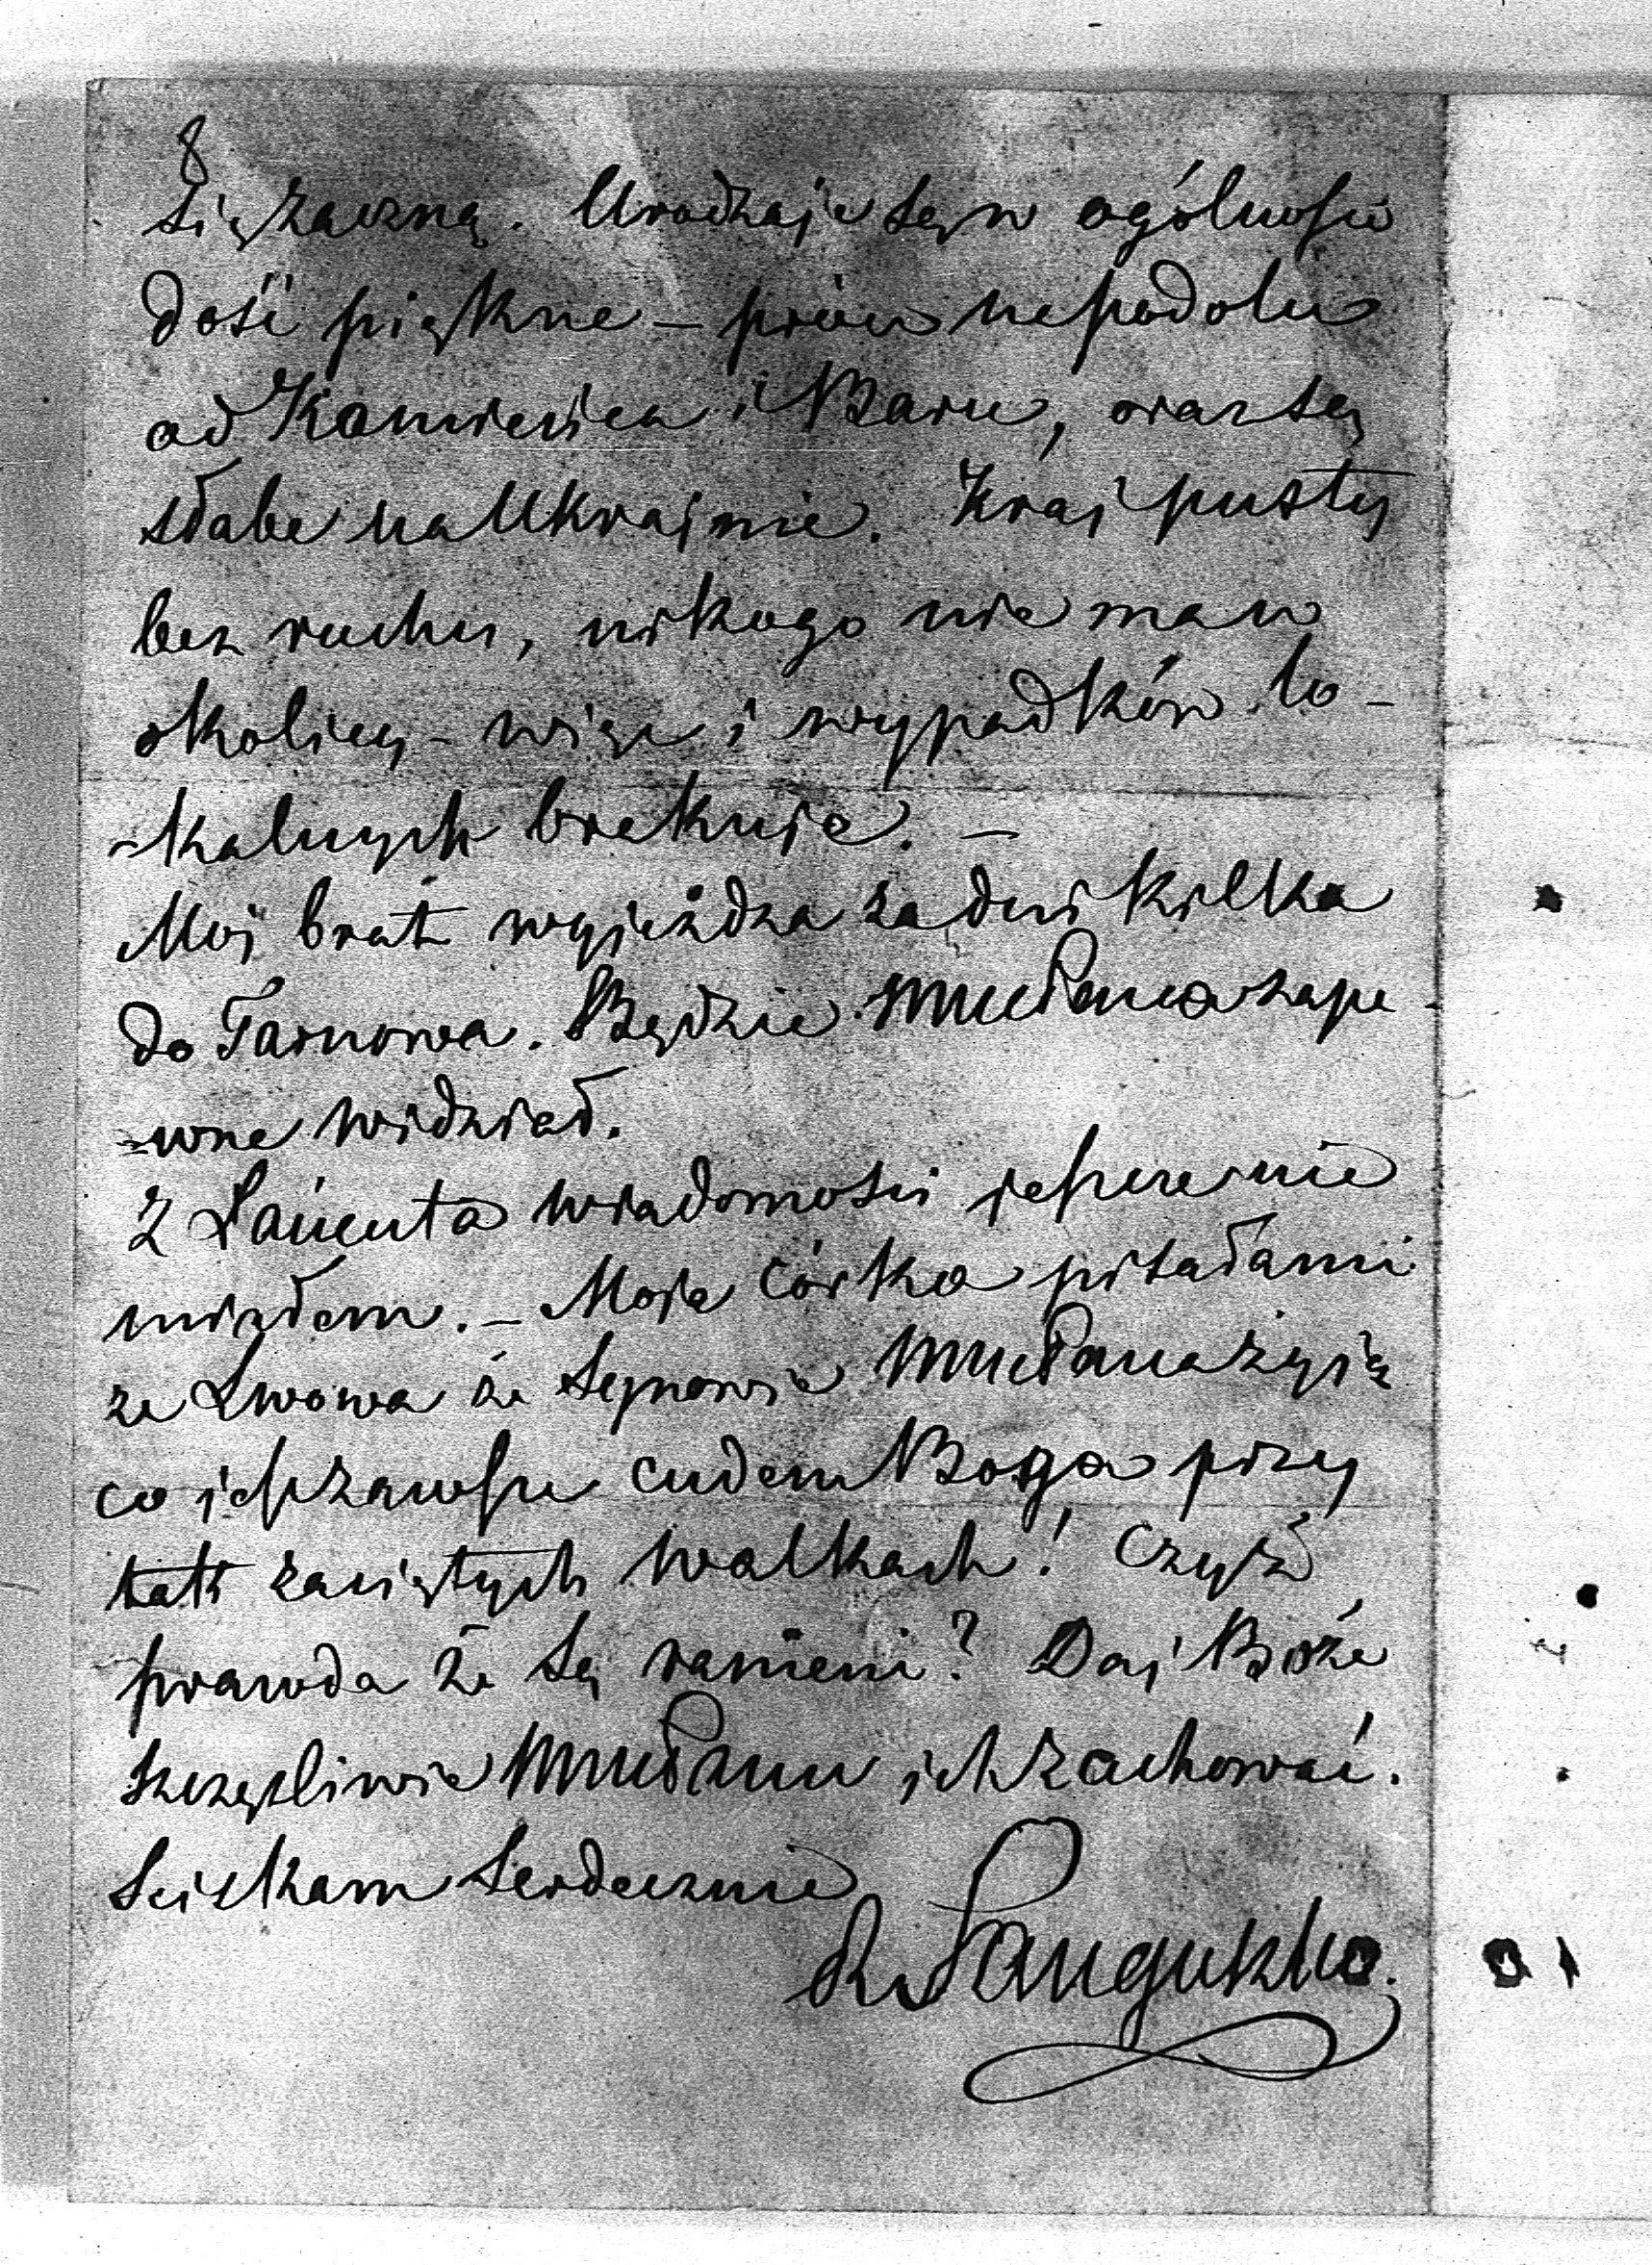 8
się zaczną. Urodzaje są w ogólności
dość piękne – prócz na podolu
od Kamieńca i Baru, oraz są
słabe na Ukrajnie. Kraj pusty
bez ruchu, nikogo nie ma w
okolicy – więc i wypadków lo-
-kalnych brakuje. –
Mój brat wyjeżdża za dni kilka
do Tarnowa. Będzie Pana zape-
-wne widział.
Z Łańcuta wiadomości jeszcze nie
miałem. – Moja córka pisała mi
ze Lwowa że synowie Pana żyją
co jest zawsze cudem Boga przy
tak zaciętych walkach! Czyż
prawda że są ranieni? Daj Boże
szczęśliwie Panu ich zachować.
Sciskam serdecznie
R Sanguszko.